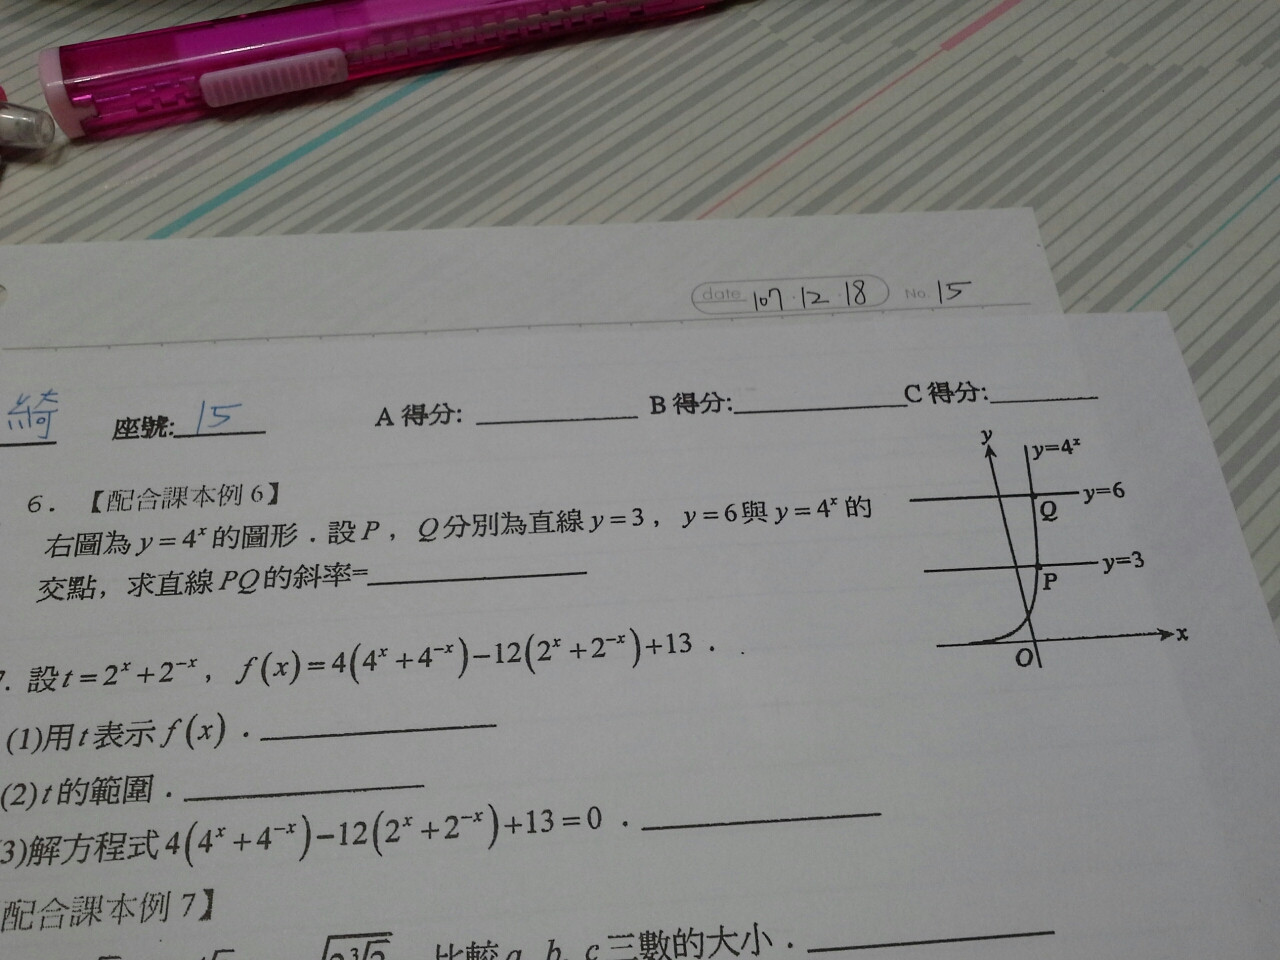 date 107.12.18 No. 15
綺 座號: 15 A 得分: B 得分: C 得分:
6. 【配合課本例 6】
右圖為 y = 4ˣ 的圖形．設 P ， Q 分別為直線 y = 3 ， y = 6 與 y = 4ˣ 的
交點，求直線 PQ 的斜率=
y
y=4ˣ
y=6
Q
y=3
P
x
O
7. 設 t = 2ˣ + 2⁻ˣ ， f(x) = 4(4ˣ + 4⁻ˣ) − 12(2ˣ + 2⁻ˣ) + 13 ．
(1)用 t 表示 f(x) ．
(2) t 的範圍．
(3)解方程式 4(4ˣ + 4⁻ˣ) − 12(2ˣ + 2⁻ˣ) + 13 = 0 ．
配合課本例 7】
比較 a, b, c 三數的大小．